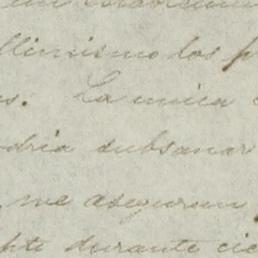 llinismo los p
s. La unica
dria subsanar
me aseguran
durante cie